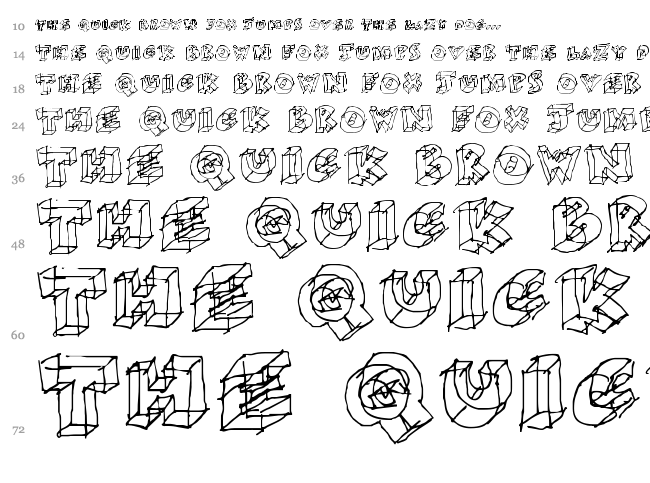 10 THE QUICK BROWN FOX JUMPS OVER THE LAZY DOG...
14 THE QUICK BROWN FOX JUMPS OVER THE LAZY D
18 THE QUICK BROWN FOX JUMPS OVER
24 THE QUICK BROWN FOX JUMP
36 THE QUICK BROWN
48 THE QUICK BR
60 THE QUICK
72 THE QUIC